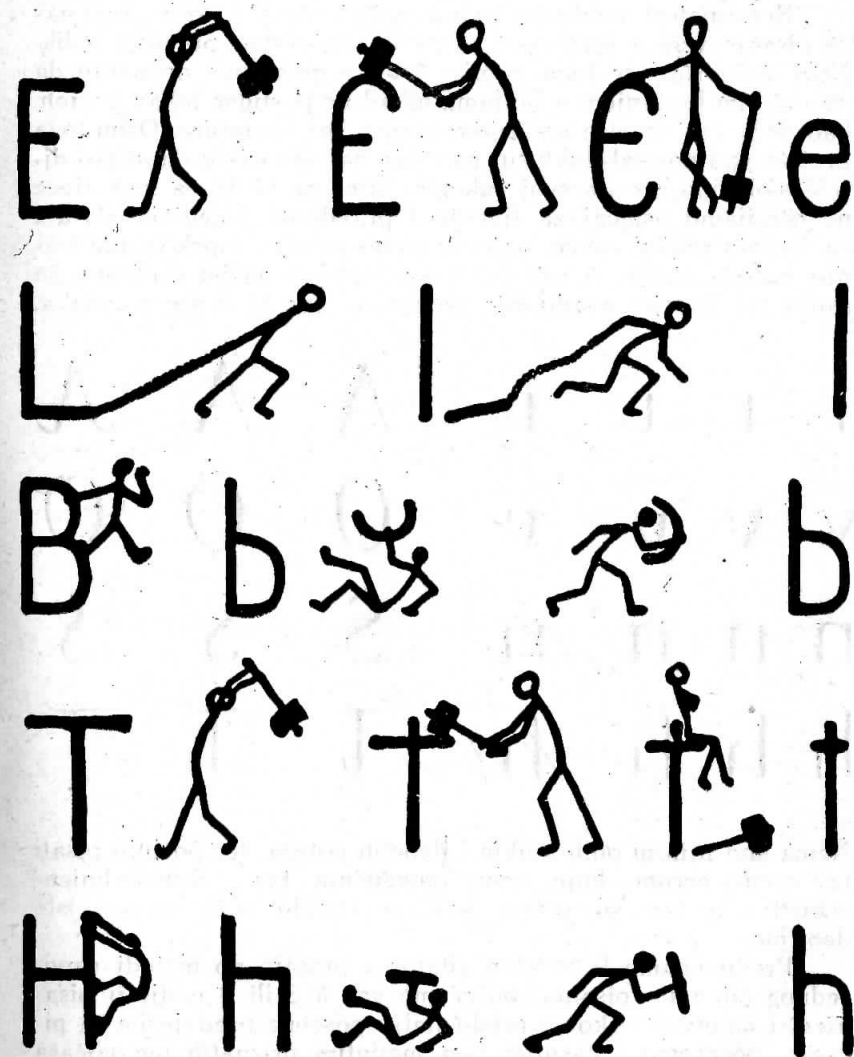 E E E e
L l l
B b b
T t t t
H h h